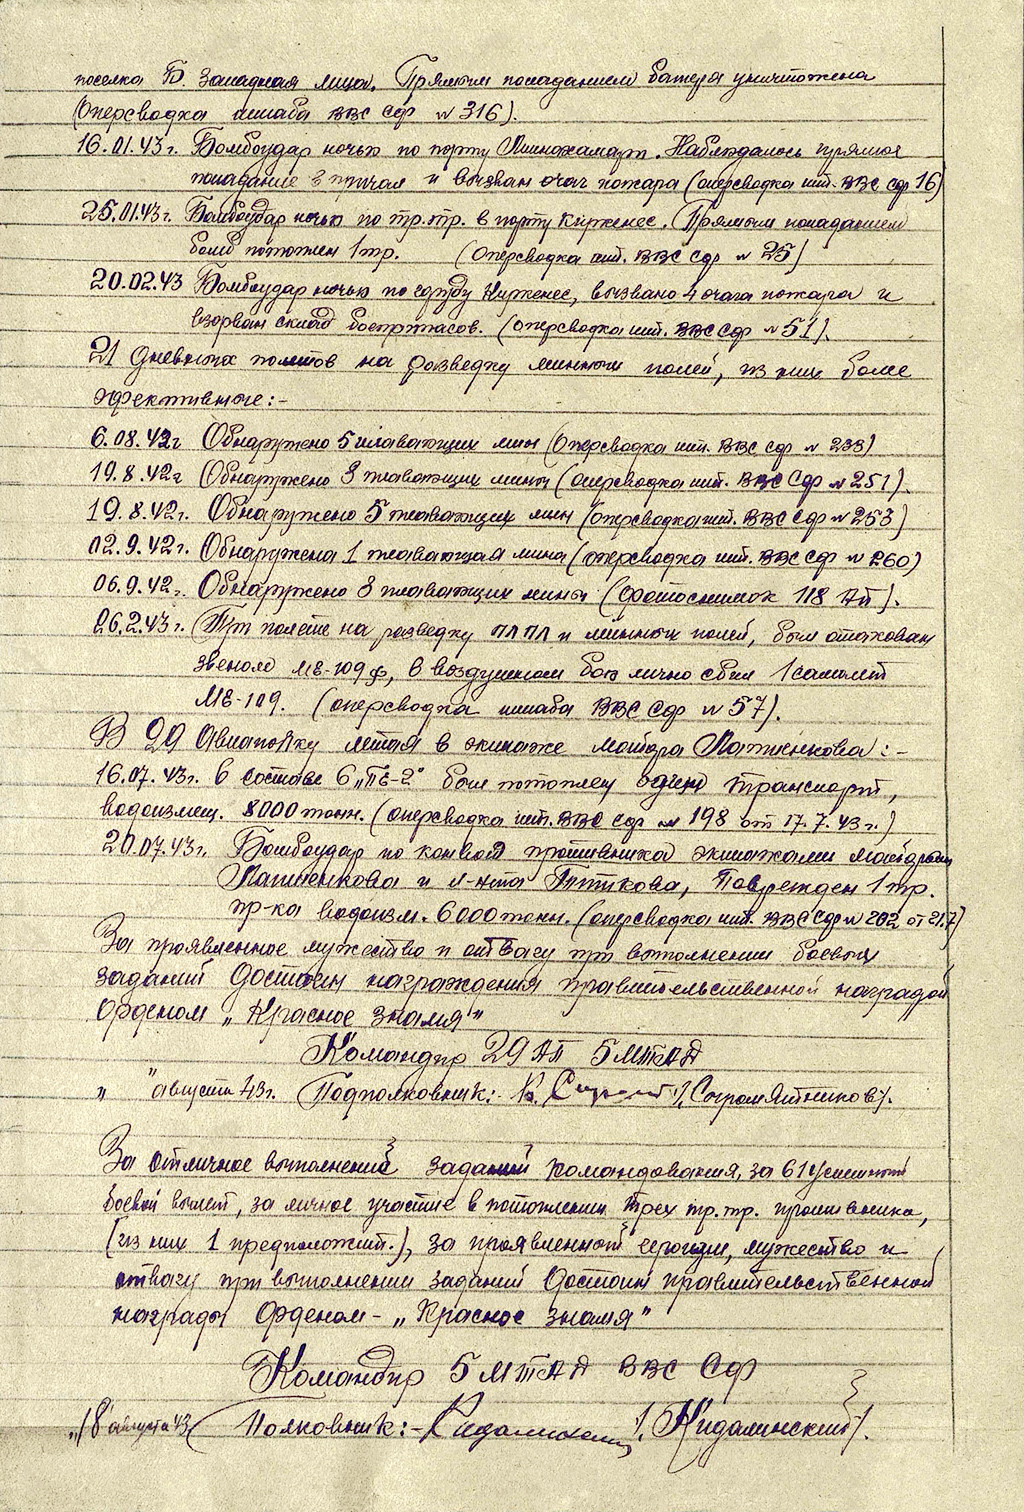 поселка Б. Западная лица. Прямым попаданием батарея уничтожена
(Оперсводка штаба ВВС СФ № 316).
16.01.43 г. Бомбоудар ночью по порту Лиинахамари. Наблюдалось прямое
попадание в причал и вызван очаг пожара (оперсводка шт. ВВС СФ 16)
25.01.43 г. Бомбоудар ночью по тр.тр. в порту Киркенес. Прямым попаданием
бомб потоплен 1 тр. (Оперсводка шт. ВВС СФ № 25)
20.02.43 Бомбоудар ночью по городу Киркенес, вызвано 4 очага пожара и
взорван склад боеприпасов. (оперсводка шт. ВВС СФ № 51).
21 Дневных полётов на разведку минных полей, из них более
эфективные:-
6.08.42 г Обнаружено 5 плавающих мин (Оперсводка шт. ВВС СФ № 233)
19.8.42 г Обнаружено 3 плавающих мины (оперсводка шт. ВВС СФ № 251).
19.8.42 г. Обнаружено 5 плавающих мин (оперсводка шт. ВВС СФ № 253)
02.9.42 г. Обнаружена 1 плавающая мина (оперсводка шт. ВВС СФ № 260)
06.9.42 г. Обнаружено 3 плавающих мины (фотоснимок 118 АП).
26.2.43 г. При полете на разведку ПЛПЛ и минных полей, был атакован
звеном МЕ-109ф, в воздушном бою лично сбил 1 самолет
МЕ-109. (оперсводка штаба ВВС СФ № 57).
В 29 Авиаполку летая в экипаже майора Лапшенкова:-
16.07.43 г. в составе 6 „ПЕ-2" был потоплен один транспорт,
водоизмещ. 8000 тонн. (оперсводка шт. ВВС СФ № 198 от 17.7.43 г.)
20.07.43 г. Бомбоудар по конвою противника экипажами майора
Лапшенкова и л-нта Птикова, Поврежден 1 тр.
пр-ка водоизм. 6000 тонн. (оперсводка шт. ВВС СФ № 202 от 21.7)
За проявленное мужество и отвагу при выполнении боевых
заданий Достоин награждения правительственной наградой
Орденом „Красное Знамя"
Командир 29 АП 5 МТАД
„ " августа 43 г. Подполковник:- /Сыромятников/.
За отличное выполнение заданий командования, за 61 успешный
боевой вылет, за личное участие в потоплении трех тр.тр. противника,
(из них 1 предположит.), за проявленной героизм, мужество и
отвагу при выполнении заданий Достоин правительственной
награды Орденом - „Красное знамя"
Командир 5 МТАД ВВС СФ
„18 августа 43 Полковник:- Кидалинский /Кидалинский/.